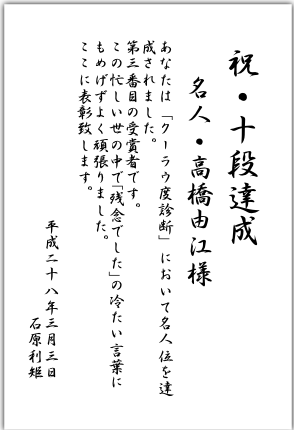 祝・十段達成
名人・高橋由江様
あなたは「クーラウ度診断」において名人位を達
成されました。
第三番目の受賞者です。
この忙しい世の中で「残念でした」の冷たい言葉に
もめげずよく頑張りました。
ここに表彰致します。
平成二十八年三月三日
石原利矩